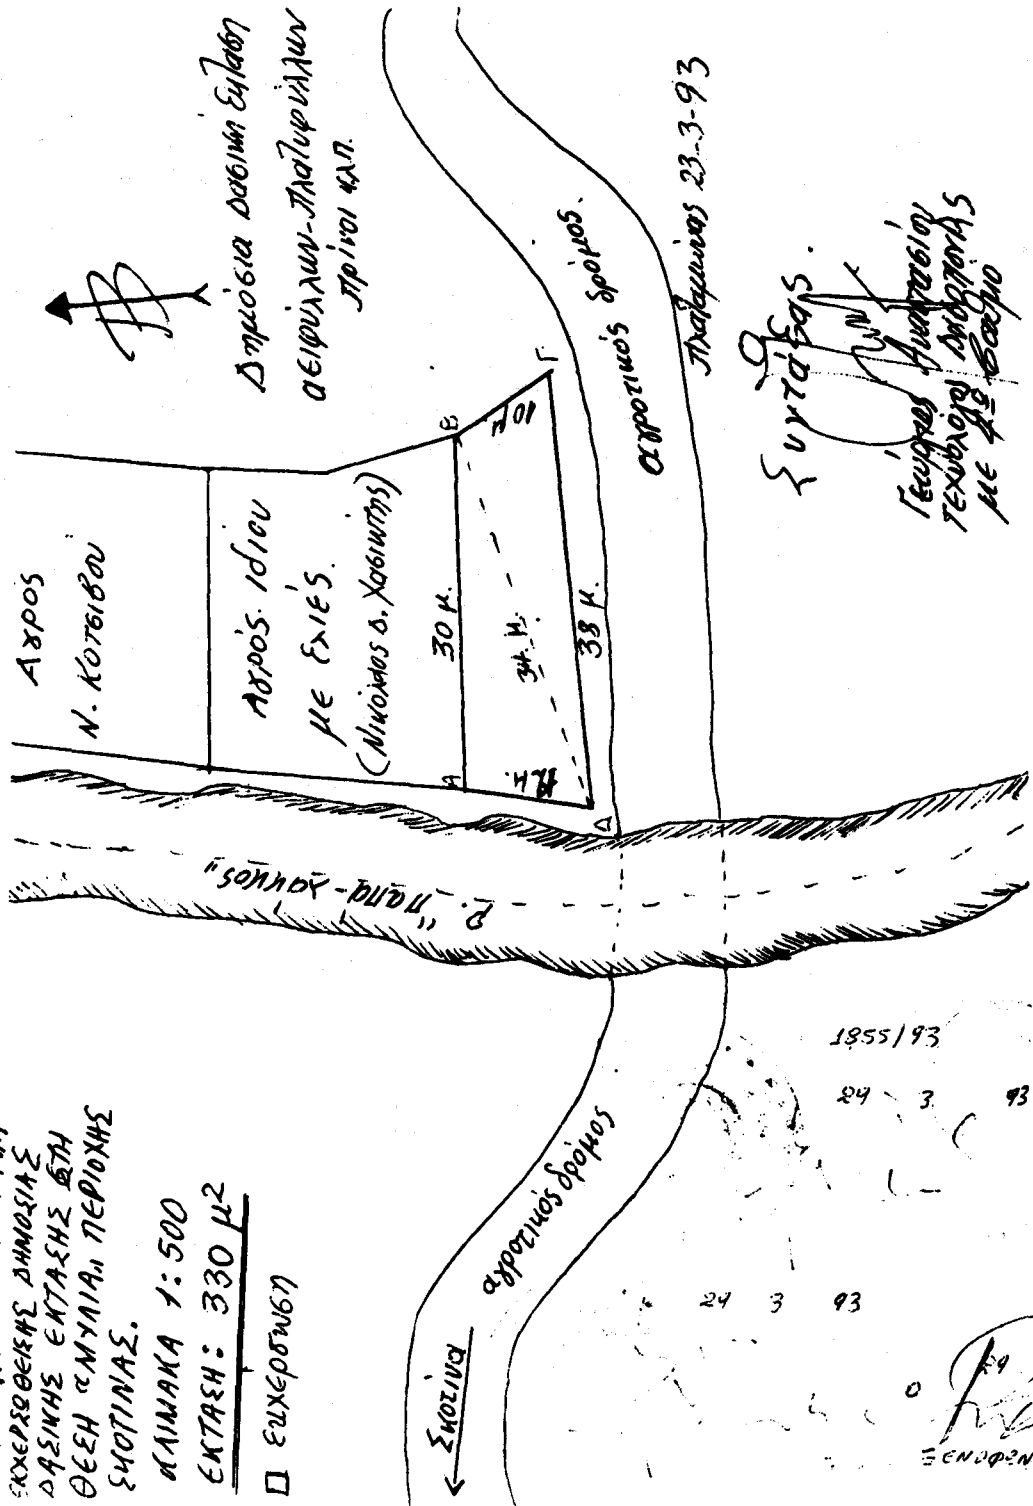 ΕΚΧΕΡΣΩΘΕΙΣΗΣ ΔΗΜΟΣΙΑΣ
ΔΑΣΙΚΗΣ ΕΚΤΑΣΗΣ ΣΤΗ
ΘΕΣΗ "ΜΥΛΙΑ" ΠΕΡΙΟΧΗΣ
ΣΚΟΤΙΝΑΣ.
ΚΛΙΜΑΚΑ 1:500
ΕΚΤΑΣΗ: 330 μ²
εκχέρσωση
Σκοτίνα
αγροτικός δρόμος
Ρ. "παπα-λάκκος"
Αγρός
Ν. Κοτσιβού
Αγρός ιδίου
με ελιές.
(Νικόλαος Δ. Χασιώτης)
Α
Β
Γ
Δ
30 μ.
34 μ.
38 μ.
10 μ
12 μ.
αγροτικός δρόμος.
Β
Δημόσια Δασική έκταση
αειφύλλων-πλατυφύλλων
πρίνοι κλπ.
Πλαταμώνας 23-3-93
Συντάξας.
Γεώργιος Αναστασίου
τεχνολόγος Δασοπονίας
με 4º βαθμό
1855/93
24 3 93
24 3 93
ΞΕΝΟΦΩΝ